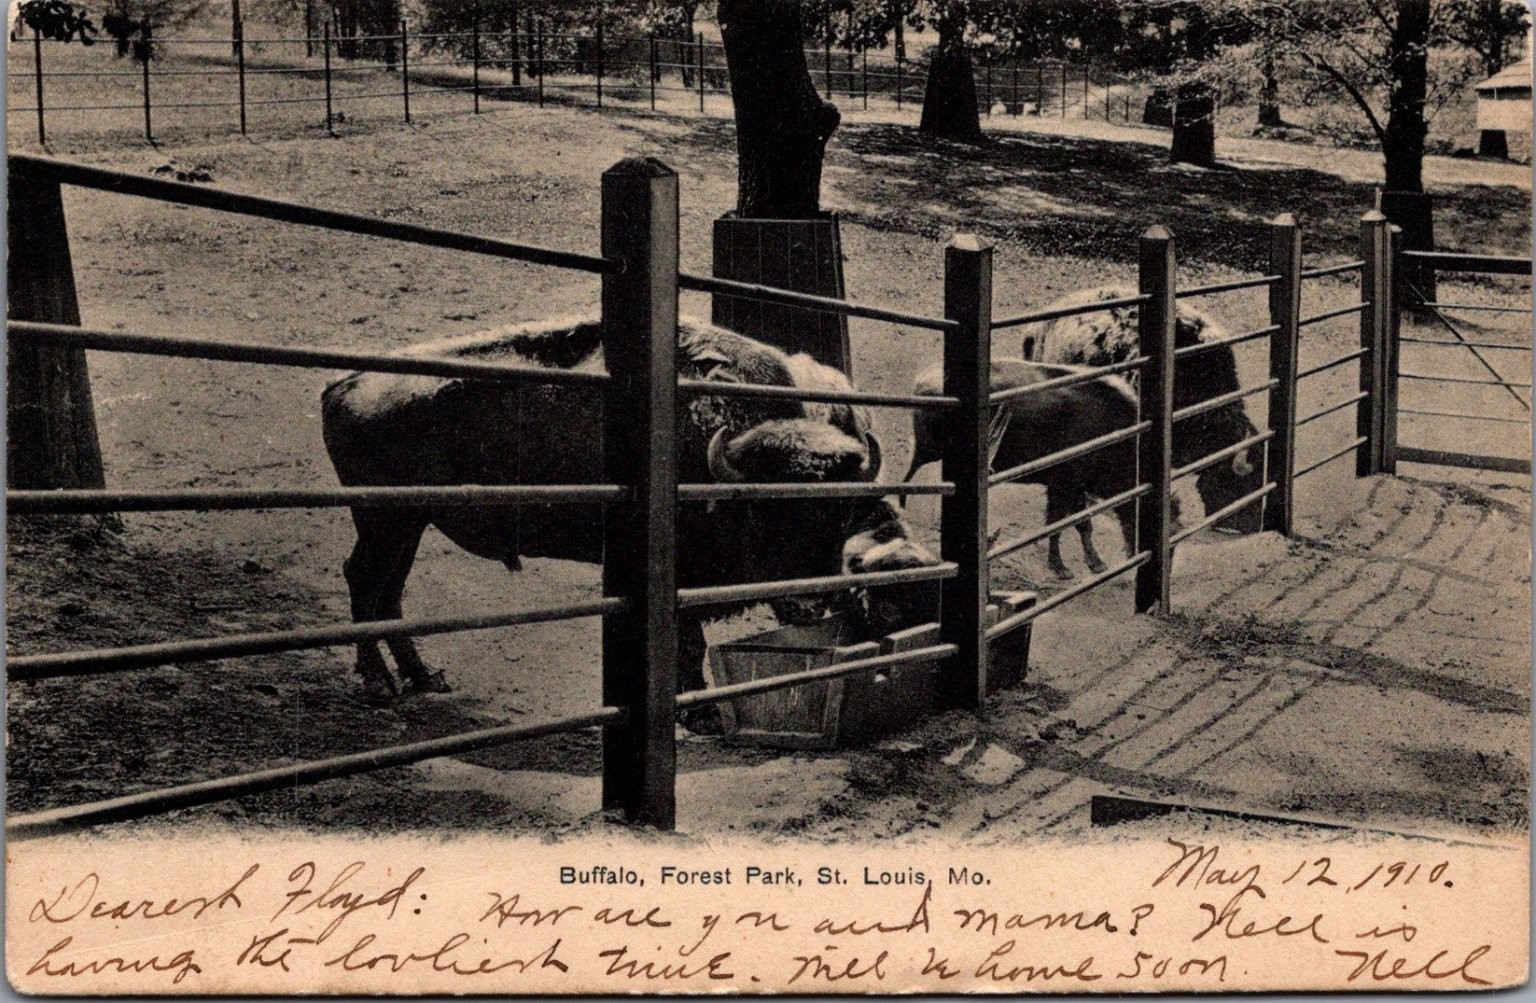 Buffalo, Forest Park, St. Louis, Mo.
May 12, 1910.
Dearest Floyd: How are you and mama? Nell is
having the lovliest time. Will be home soon. Nell